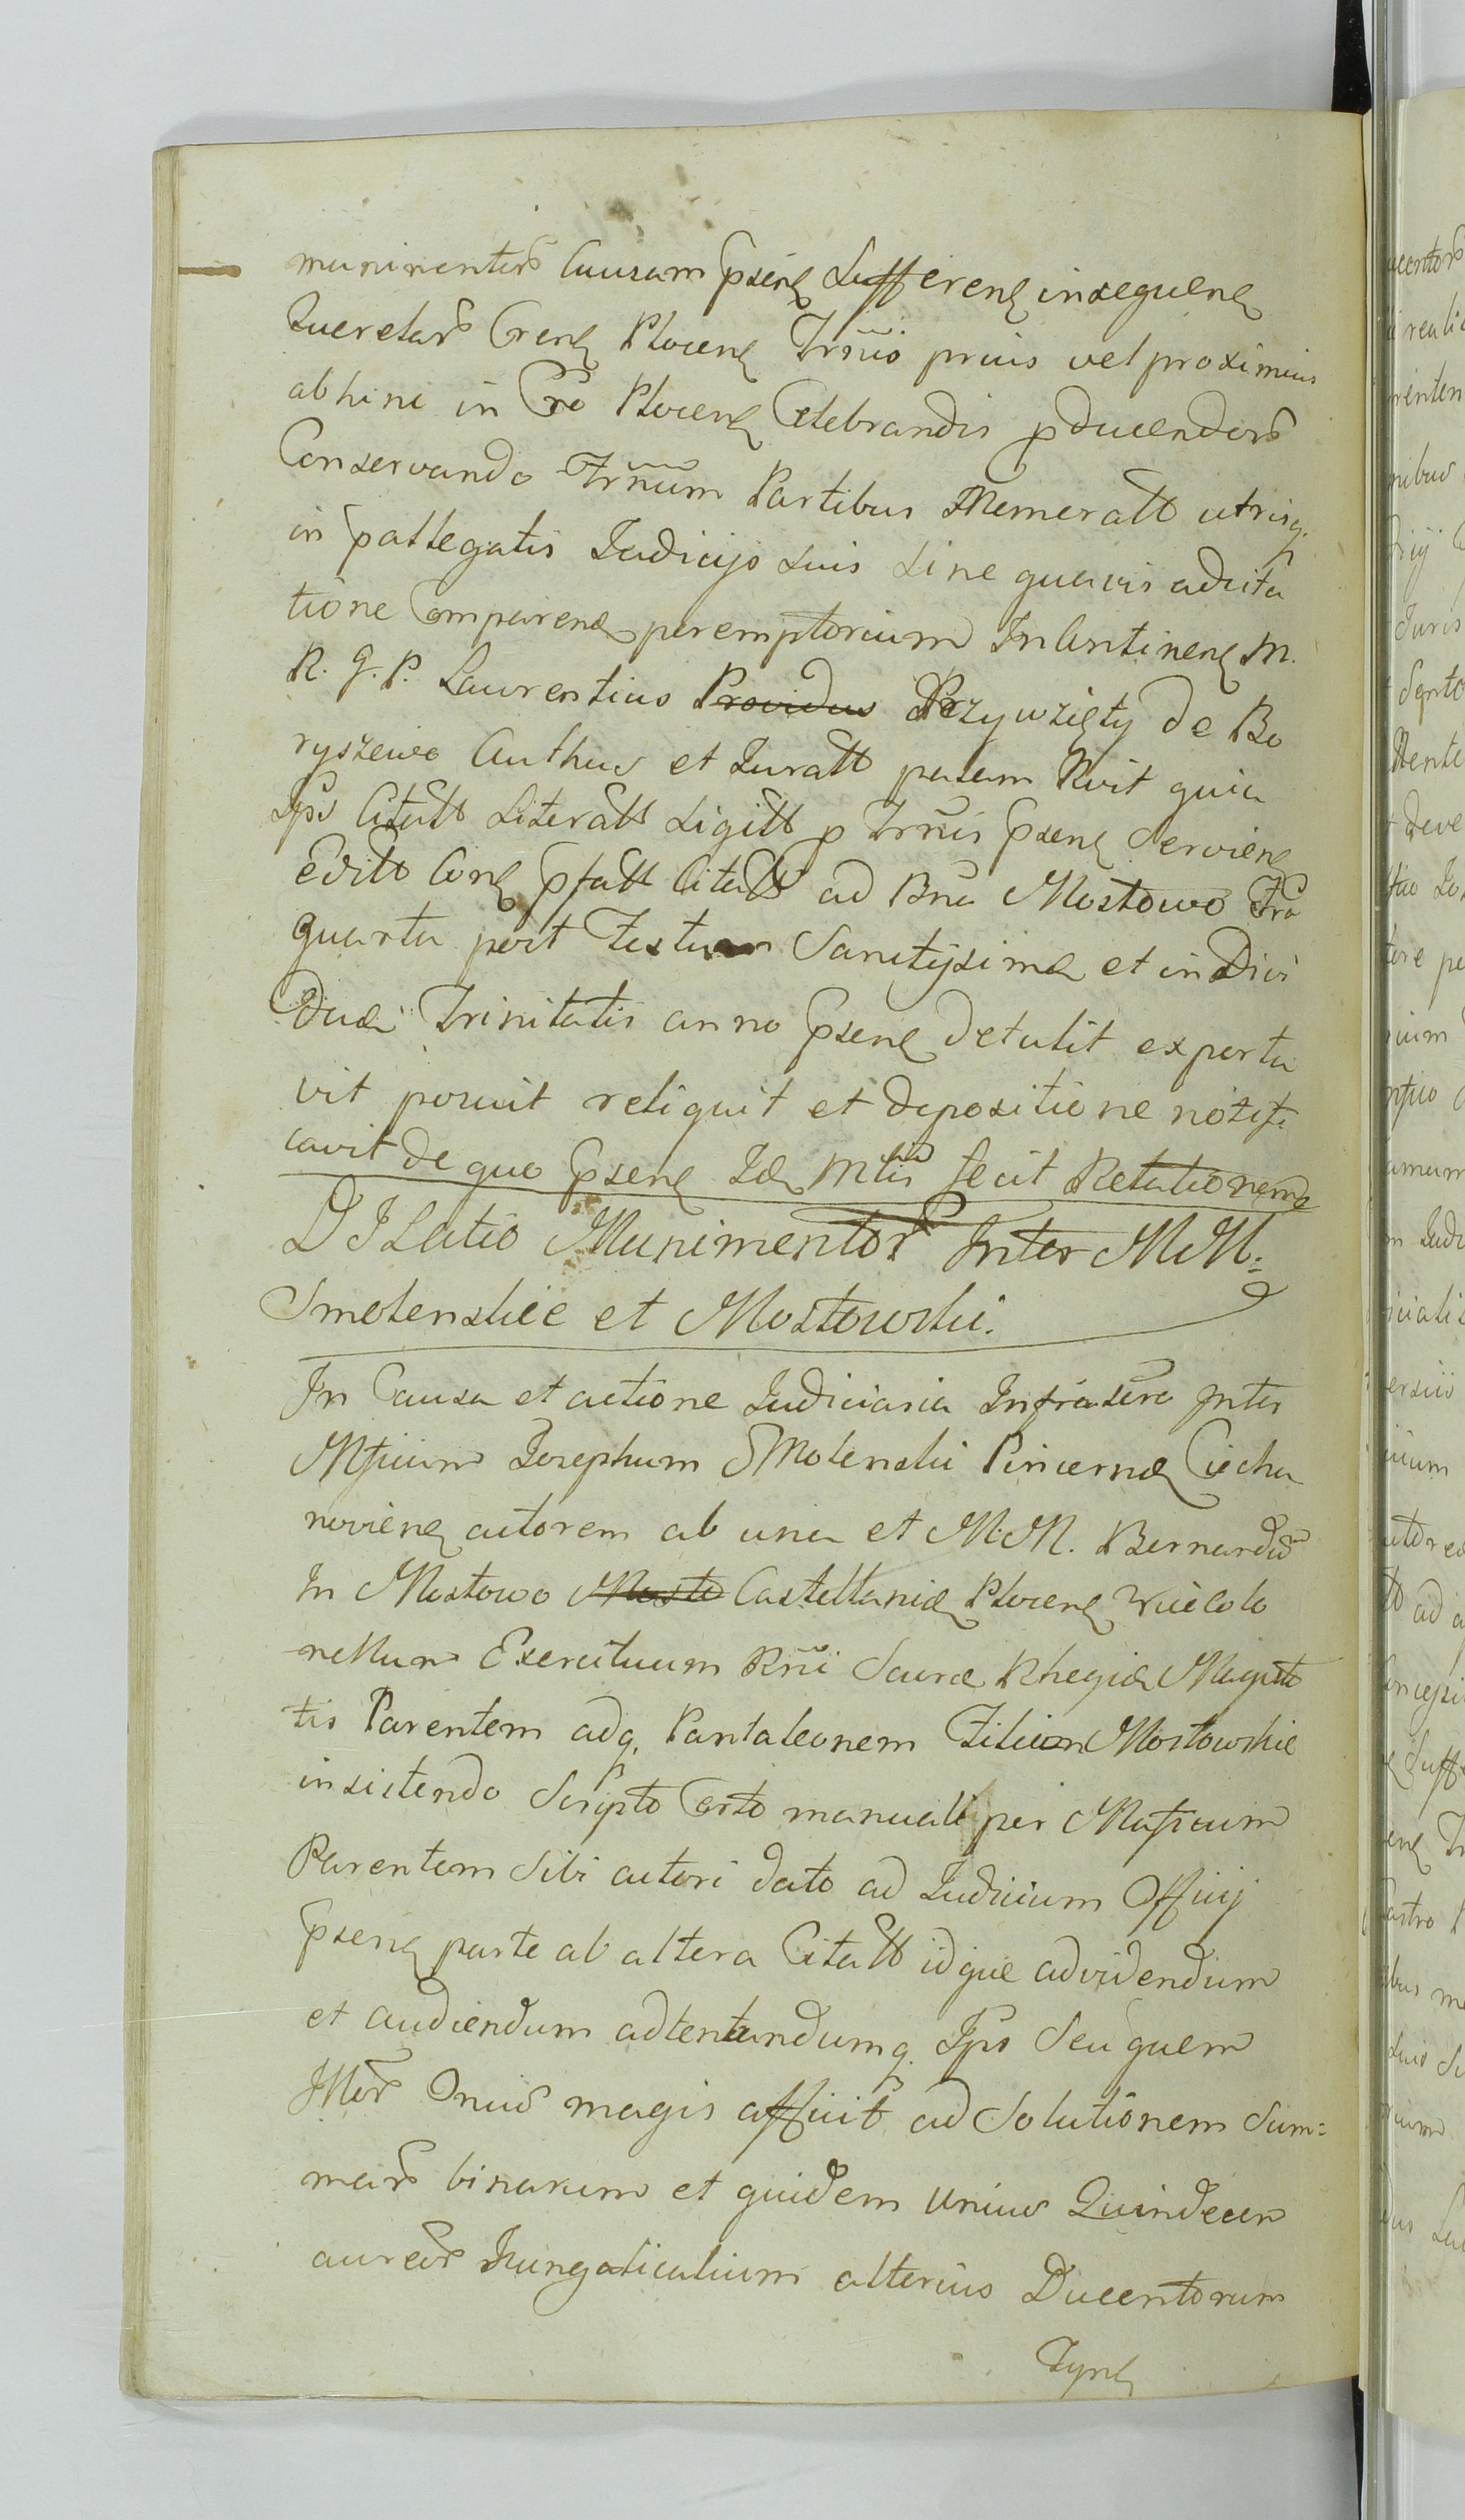 munimentor̃ Causam p̃sen̄ Suffieren̄ insequen̄
Querelar̃ Cren̄ Plocen̄ Trn̄io prius vel proximius
abhinc in Cro Plocen̄ Celebrandis pducendor̃
Conservando Trn̄um Partibus Memeratt utrisq.
in pattegatis Judicijs suis sine quavis adcita
tione Comparen̄ peremptorium Inhstinen̄ M.
R. G. P. Laurentius Providus Przywzięty de Bo
ryszewo Authus et Juratt palam Rcit quia
Ips Citatt Literatt Sigitt p Trn̄is p̃sen̄ Servien̄
Edito Con̄ pfatt Citatt ad Bna Mostowo Fra
quarta post Festum Sanctissimæ et indivi
duæ Trinitatis anno p̃sen̄ detulit exporta
vit posuit reliquit et depositione notifi
cavit de quo p̃sen̄ Idem Mtis fecit Relationem
DILatio Munimentor̃ Inter MM:
Smolenskie et Mostowski.
In Causa et actione Judiciaria Infrascro Inter
Mficum Josephum SMolenski Pincernæ Ciecha
novien̄ actorem ab una et M.M. Bernardũ
In Mostowo Mosto Castellanidæ Plocen̄ Vicecolo
nellum Exercituum Rni Sacræ Rhegiæ Majesta
tis Parentem adq. Pantaleonem Filium Mostowskie
insistendo Scripto Certo manuali per Mficum
Parentem Sibi actori dato ad Judicium Officij
p̃sen̄ parte ab altera Citatt idque ad videndum
et audiendum adtentandumq. Ips Seu quem
Illor̃ Onus magis afficit ad Solutionem Sum=
mar̃ binarum et quidem unius Quindecem
aureor̃ Hungaricalium alterius Ducentorum
Tynf̄